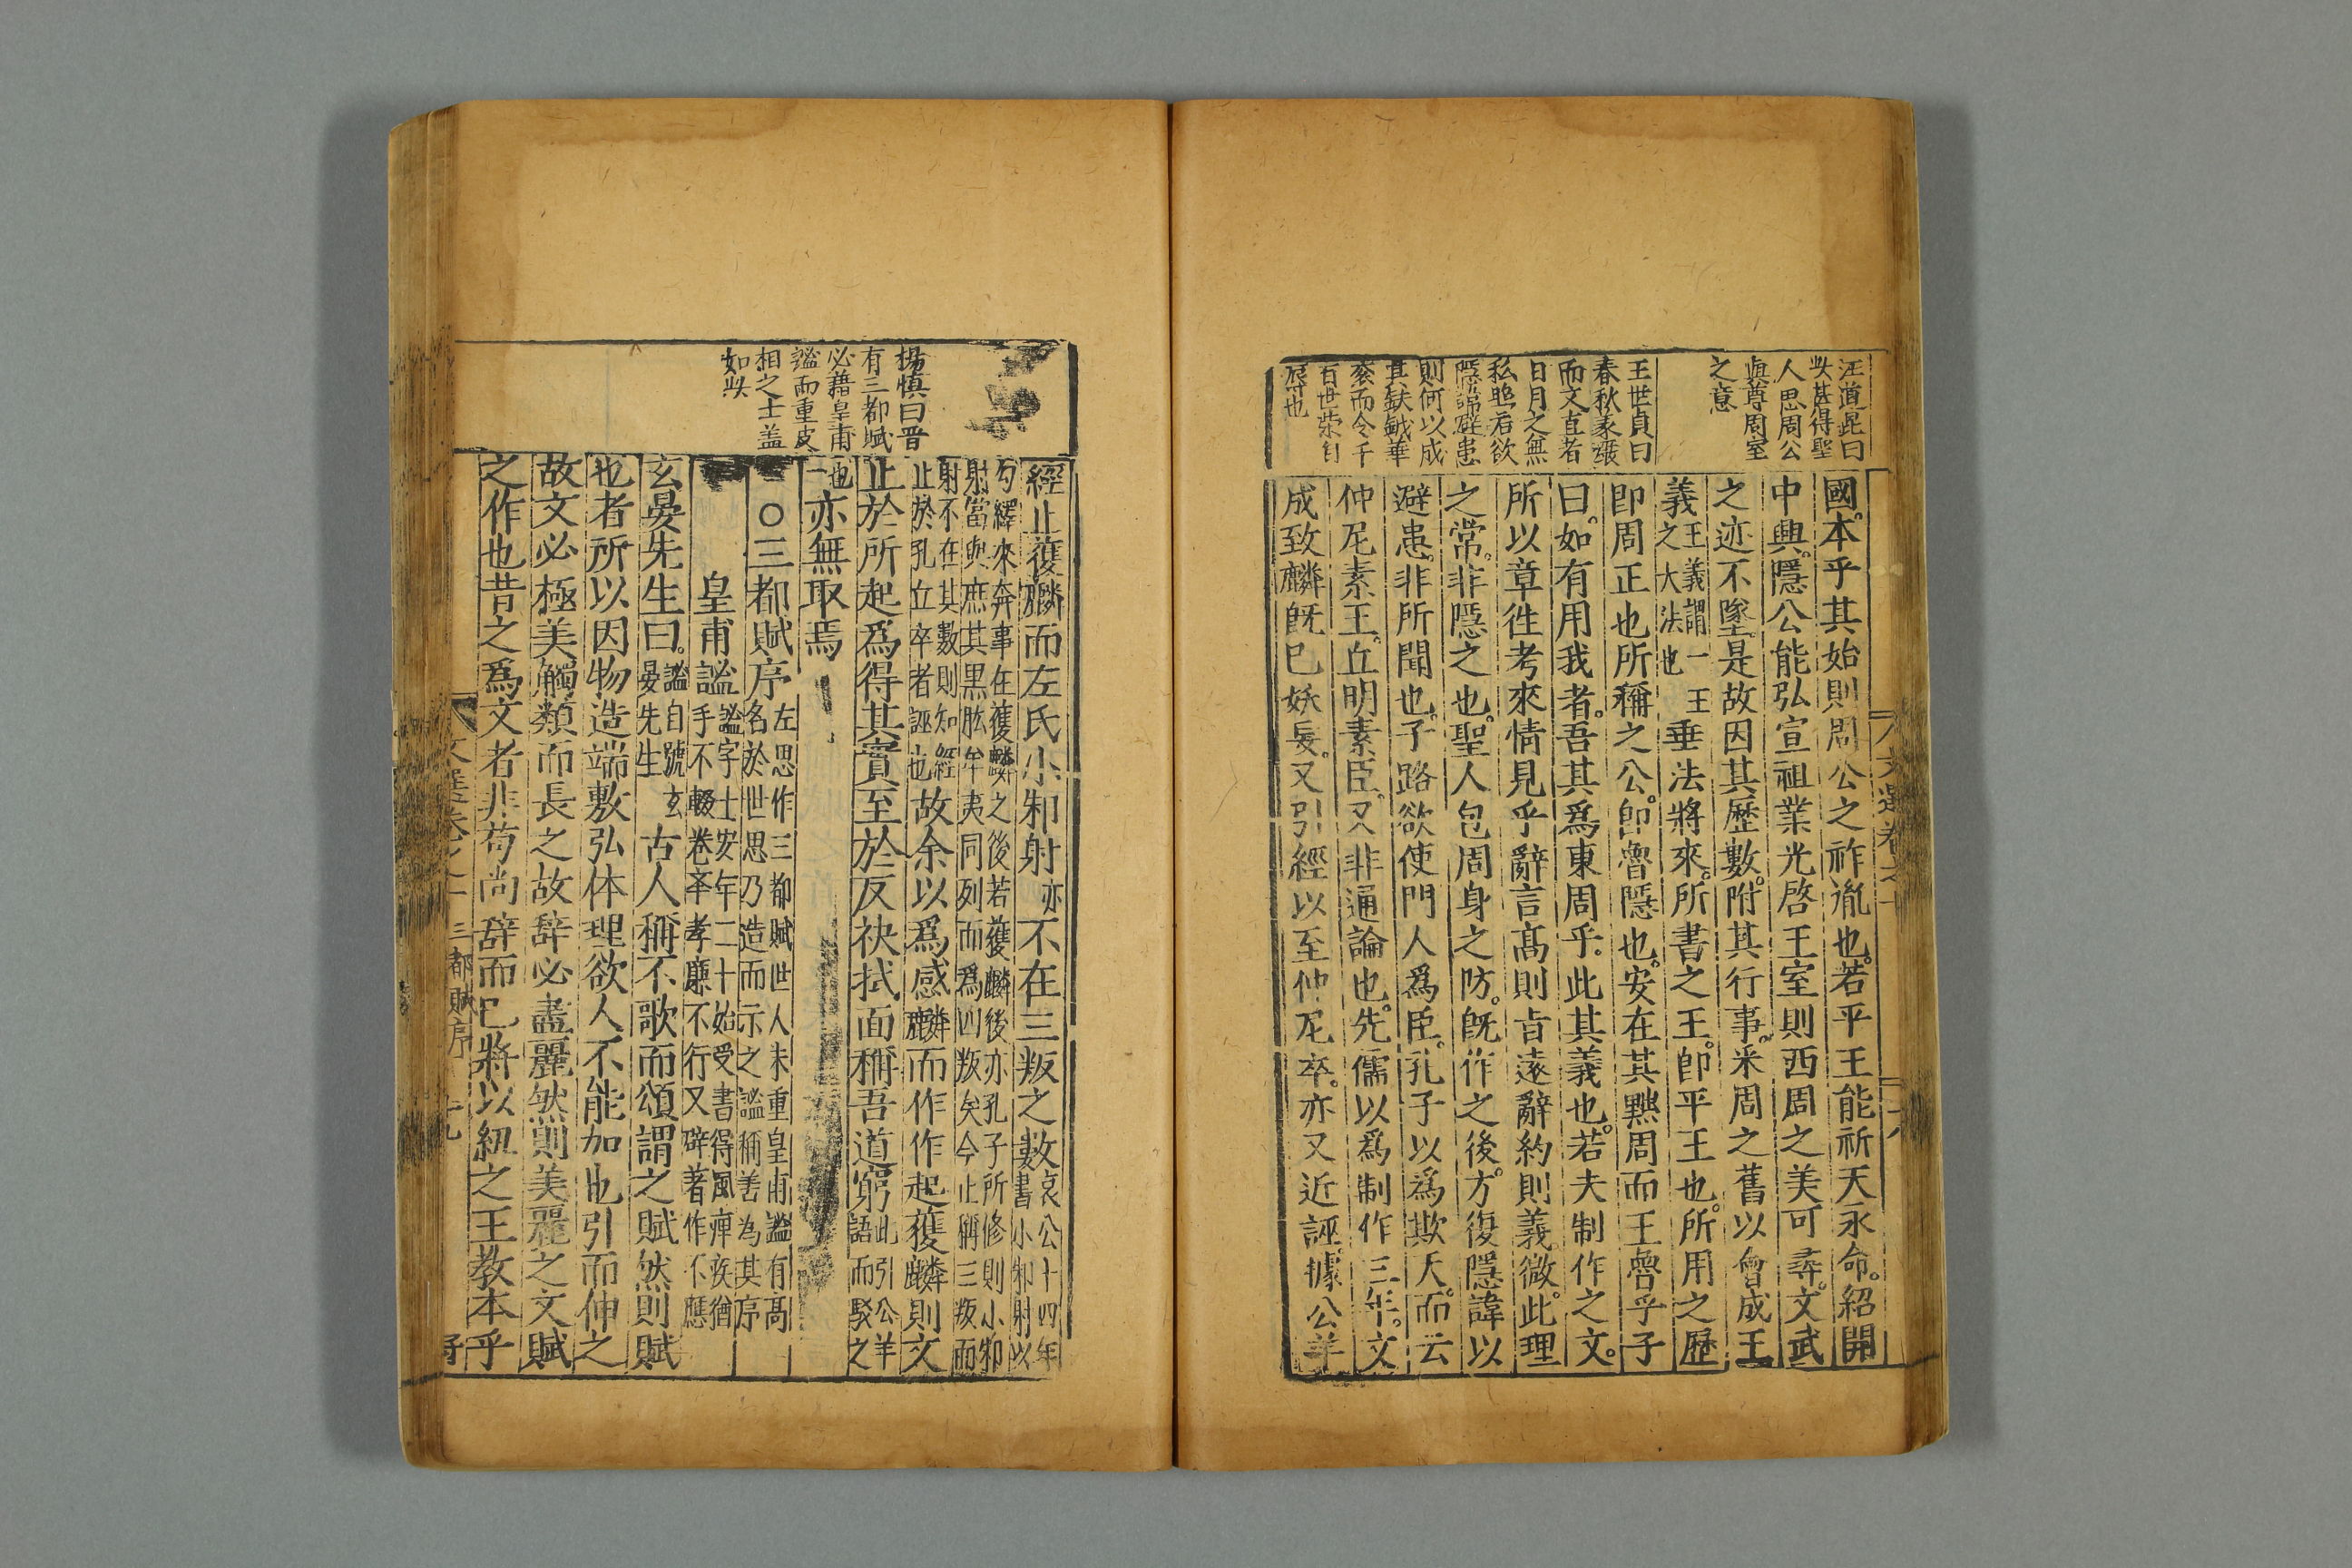 汪道昆曰
此甚得聖
人思周公
與尊周室
之意
王世貞曰
春秋褒貶
而文直者
日月之無
私照若欲
隱諱避患
則何以成
其鈇鉞華
袞而令千
百世榮
辱也
國本乎其始則周公之祚胤也若平王能祈天永命紹開
中興隱公能弘宣祖業光啓王室則西周之美可尋文武
之迹不墜是故因其歷數附其行事采周之舊以會成王
義王義謂一王
之大法也垂法將來所書之王即平王也所用之歷
即周正也所稱之公即魯隱也安在其黜周而王魯乎子
曰如有用我者吾其爲東周乎此其義也若夫制作之文
所以章徃考來情見乎辭言高則旨遠辭約則義微此理
之常非隱之也聖人包周身之防旣作之後方復隱諱以
避患非所聞也子路欲使門人爲臣孔子以爲欺天而云
仲尼素王丘明素臣又非通論也先儒以爲制作三年文
成致麟旣已妖妄又引經以至仲尼卒亦又近誣據公羊
文選卷之十
十八
楊慎曰晋
有三都賦
必藉皇甫
謐而重皮
相之士盖
如此
經止獲麟而左氏小邾射亦不在三叛之數哀公十四年
書小邾射以
句繹來奔事在獲麟之後若獲麟後亦孔子所修則小邾
射當與庶其黑肱牟夷同列而爲四叛矣今止稱三叛而
射不在其數則知經
止於孔立卒者誣也故余以爲感麟而作作起獲麟則文
止於所起爲得其實至於反袂拭面稱吾道窮此引公羊
語而駁之
也
亦無取焉
○三都賦序左思作三都賦世人未重皇甫謐有高
名於世思乃造而示之謐稱善為其序
皇甫謐謐字士安年二十始受書得風痺疾猶
手不輟卷卒孝廉不行又辟著作不應
玄晏先生曰謐自號玄
晏先生古人稱不歌而頌謂之賦然則賦
也者所以因物造端敷弘体理欲人不能加也引而伸之
故文必極美觸類而長之故辞必盡麗然則美麗之文賦
之作也昔之爲文者非苟尚辞而已將以紐之王教本乎
文選卷之十
三都賦序
十九